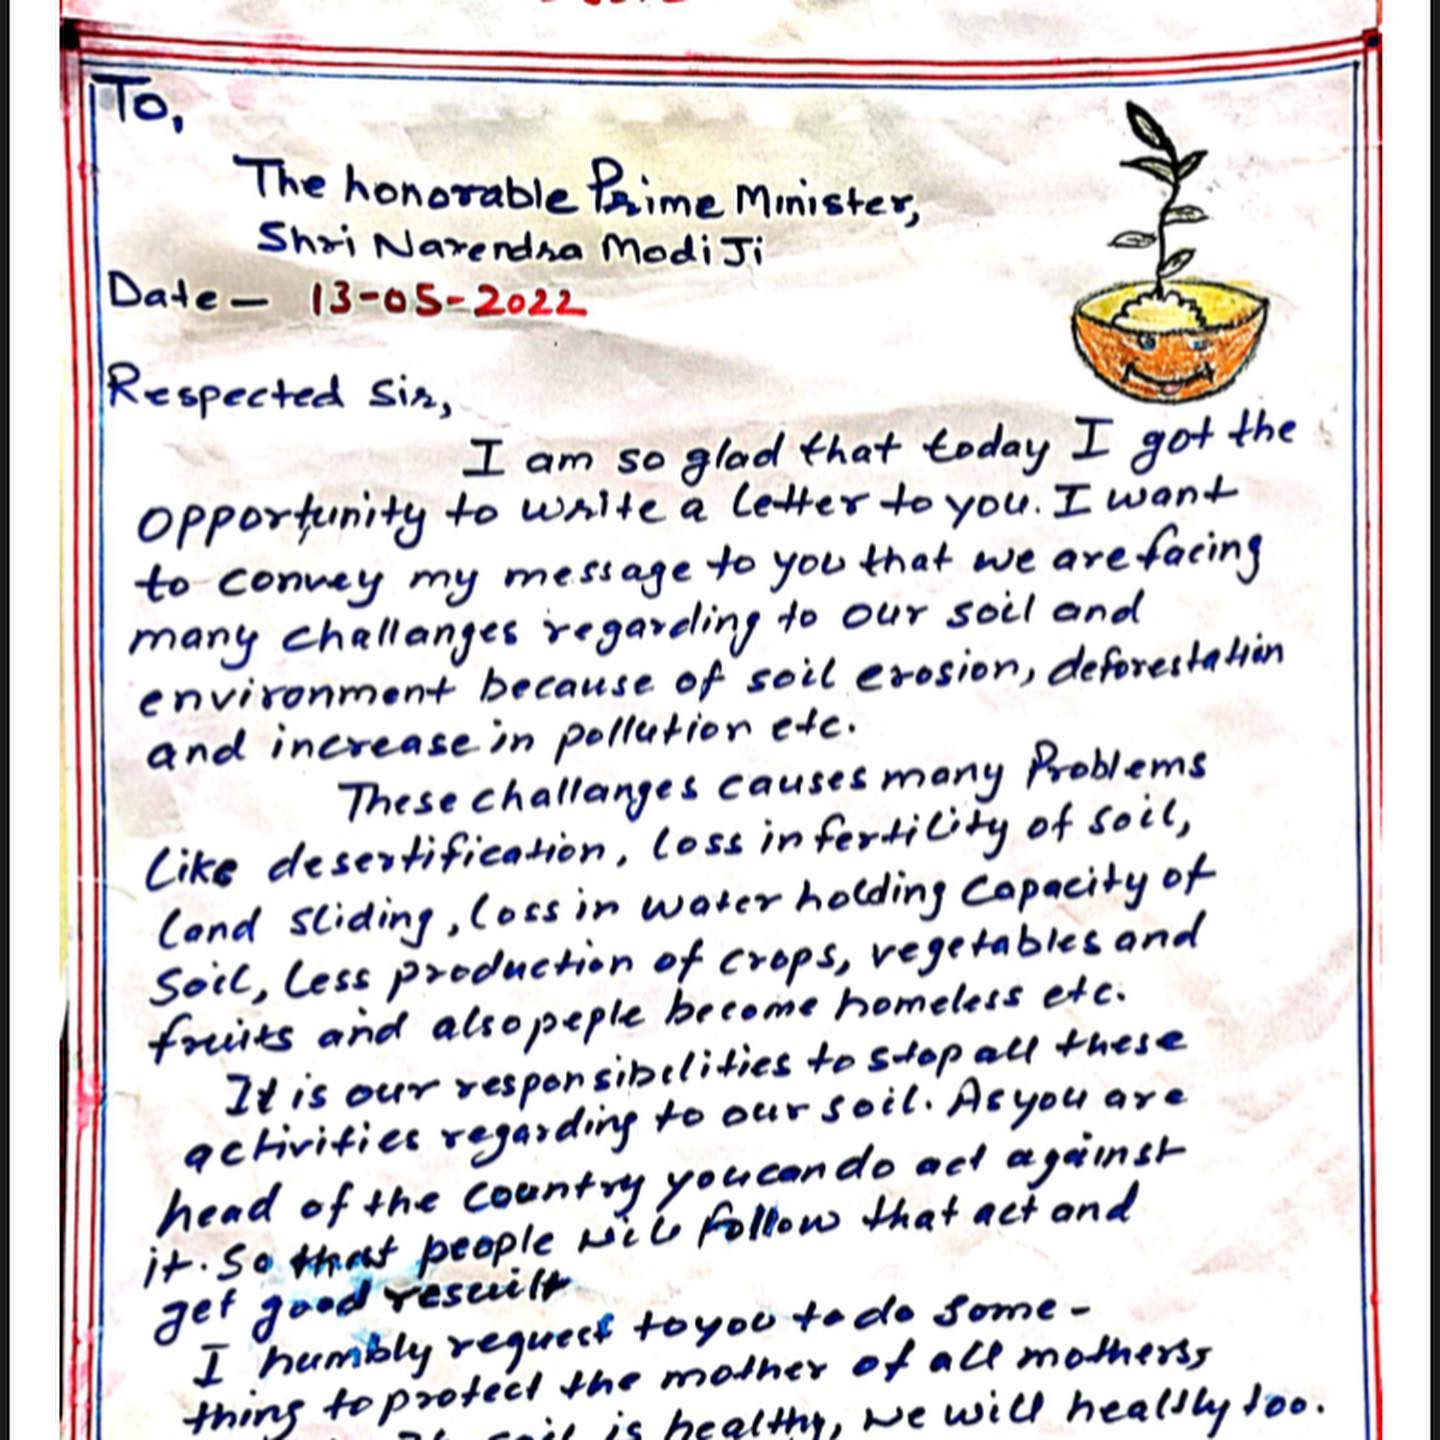 To,
The honorable Prime Minister,
Shri Narendra Modi Ji
Date - 13-05-2022
Respected Sir,
I am so glad that today I got the
opportunity to write a letter to you. I want
to convey my message to you that we are facing
many challanges regarding to our soil and
environment because of soil erosion, deforestation
and increase in pollution etc.
These challanges causes many Problems
like desertification, loss in fertility of soil,
land sliding, loss in water holding capacity of
soil, less production of crops, vegetables and
fruits and also peple become homeless etc.
It is our responsibilities to stop all these
activities regarding to our soil. As you are
head of the country you can do act against
it. So that people will follow that act and
get good resuilt
I humbly request to you to do some-
thing to protect the mother of all motherss
soil is healthy, we will healthy too.